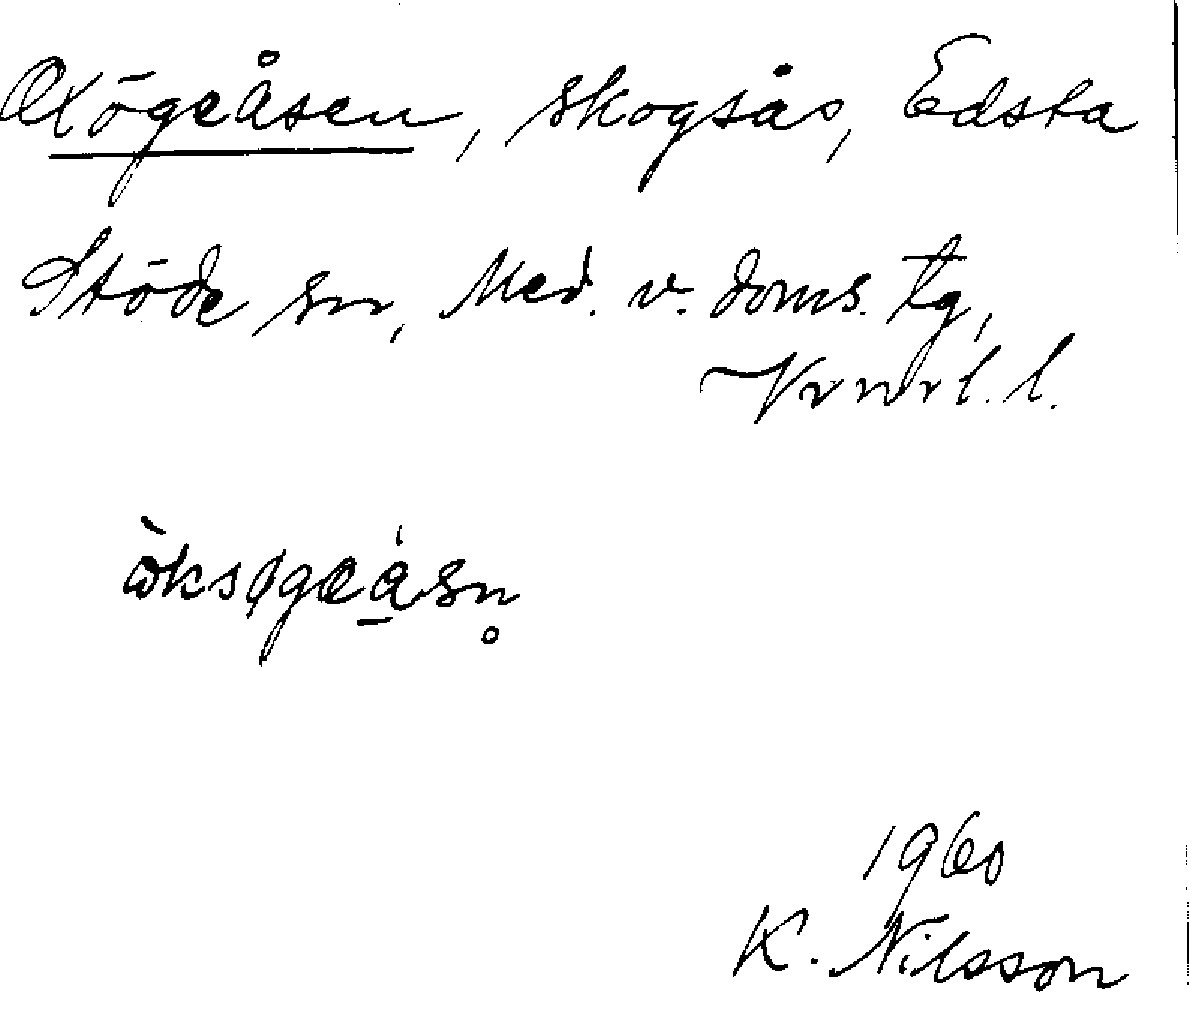 Oxögeåsen, skogsås, Edsta
Stöde sn, Med. v. doms. tg,
Vrnrl. l.
1960
K. Nilsson